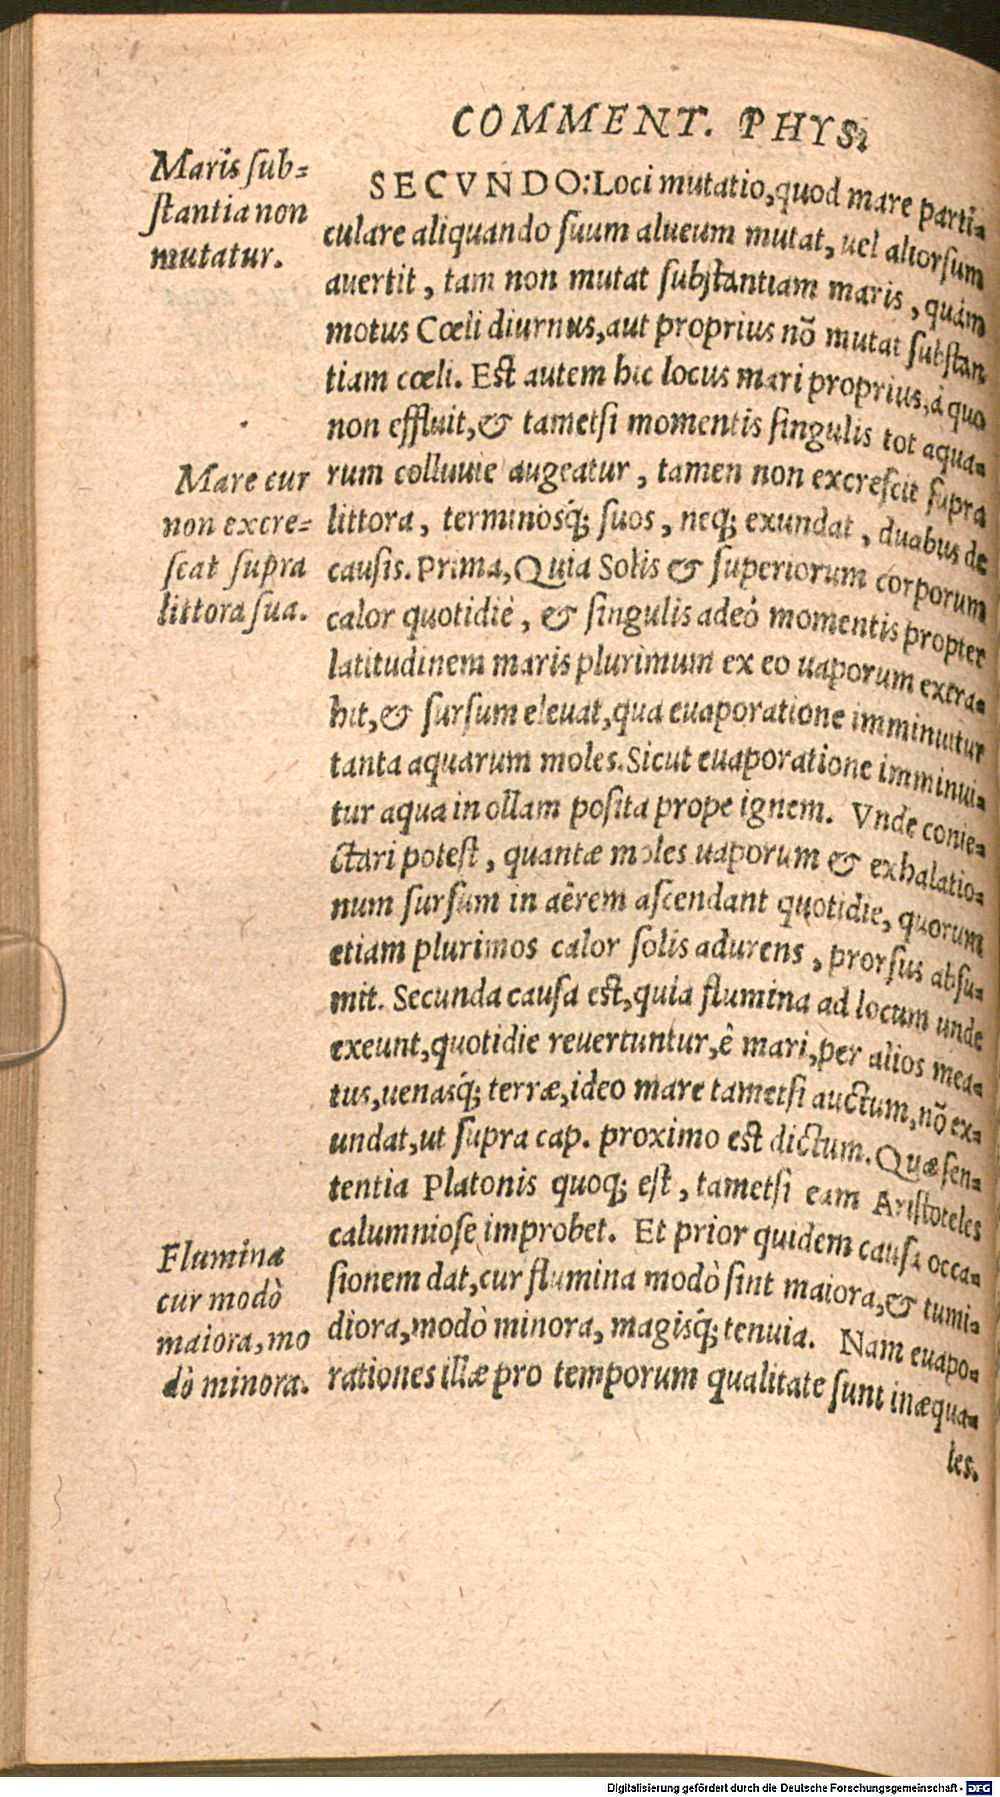 COMMENT. PHYS.
Maris sub=
stantia non
mutatur.
SECVNDO: Loci mutatio, quod mare parti=
culare aliquando suum alueum mutat, uel aliorsum
auertit, tam non mutat substantiam maris, quàm
motus Cœli diurnus, aut proprius nõ mutat substan
tiam cœli. Est autem hic locus mari proprius, à quo
non effluit, & tametsi momentis singulis tot aqua=
Mare cur
non excre=
scat supra
littora sua.
rum colluuie augeatur, tamen non excrescit supra
littora, terminosq́; suos, neq; exundat, duabus de
causis. Prima, Quia Solis & superiorum corporum
calor quotidiè, & singulis adeò momentis propter
latitudinem maris plurimum ex eo uaporum extra=
hit, & sursum eleuat, qua euaporatione imminuitur
tanta aquarum moles. Sicut euaporatione imminui=
tur aqua in ollam posita prope ignem. Vnde conie=
ctari potest, quantæ moles uaporum & exhalatio=
num sursum in aêrem ascendant quotidie, quorum
etiam plurimos calor solis adurens, prorsus absu=
mit. Secunda causa est, quia flumina ad locum unde
exeunt, quotidie reuertuntur, ê mari, per alios mea=
tus, uenasq́; terræ, ideo mare tametsi auctum, nõ ex=
undat, ut supra cap. proximo est dictum. Quæ sen=
tentia Platonis quoq; est, tametsi eam Aristoteles
calumniose improbet. Et prior quidem causa occa=
Flumina
cur modò
maiora, mo
dò minora.
sionem dat, cur flumina modò sint maiora, & tumi=
diora, modò minora, magisq́; tenuia. Nam euapo=
rationes illæ pro temporum qualitate sunt inæqua=
les.
Digitalisierung gefördert durch die Deutsche Forschungsgemeinschaft - DFG